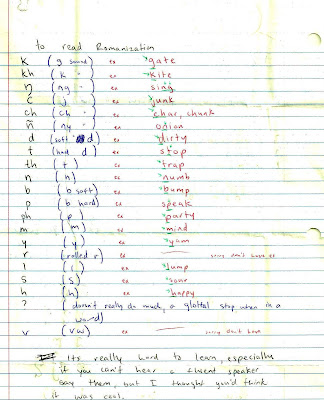 to read Romanization
k (g sound) ex gate
kh (k " ) ex kite
ŋ (ng " ) ex sing
č (j " ) ex junk
ch (ch " ) ex char, chunk
ñ (ny " ) ex onion
d (soft d) ex dirty
t (hard d) ex stop
th (t) ex trap
n (n) ex numb
b (b soft) ex bump
p (b hard) ex speak
ph (p) ex party
m (m) ex mind
y (y) ex yam
r (rolled r) ex sorry don't have ex
l (l) ex jump
s (s) ex sour
h (h) ex happy
? (doesn't really do much, a glottal stop when in a
word)
v (vw) ex sorry don't have
Its really hard to learn, especially
if you can't hear a fluent speaker
say them, but I thought you'd think
it was cool.